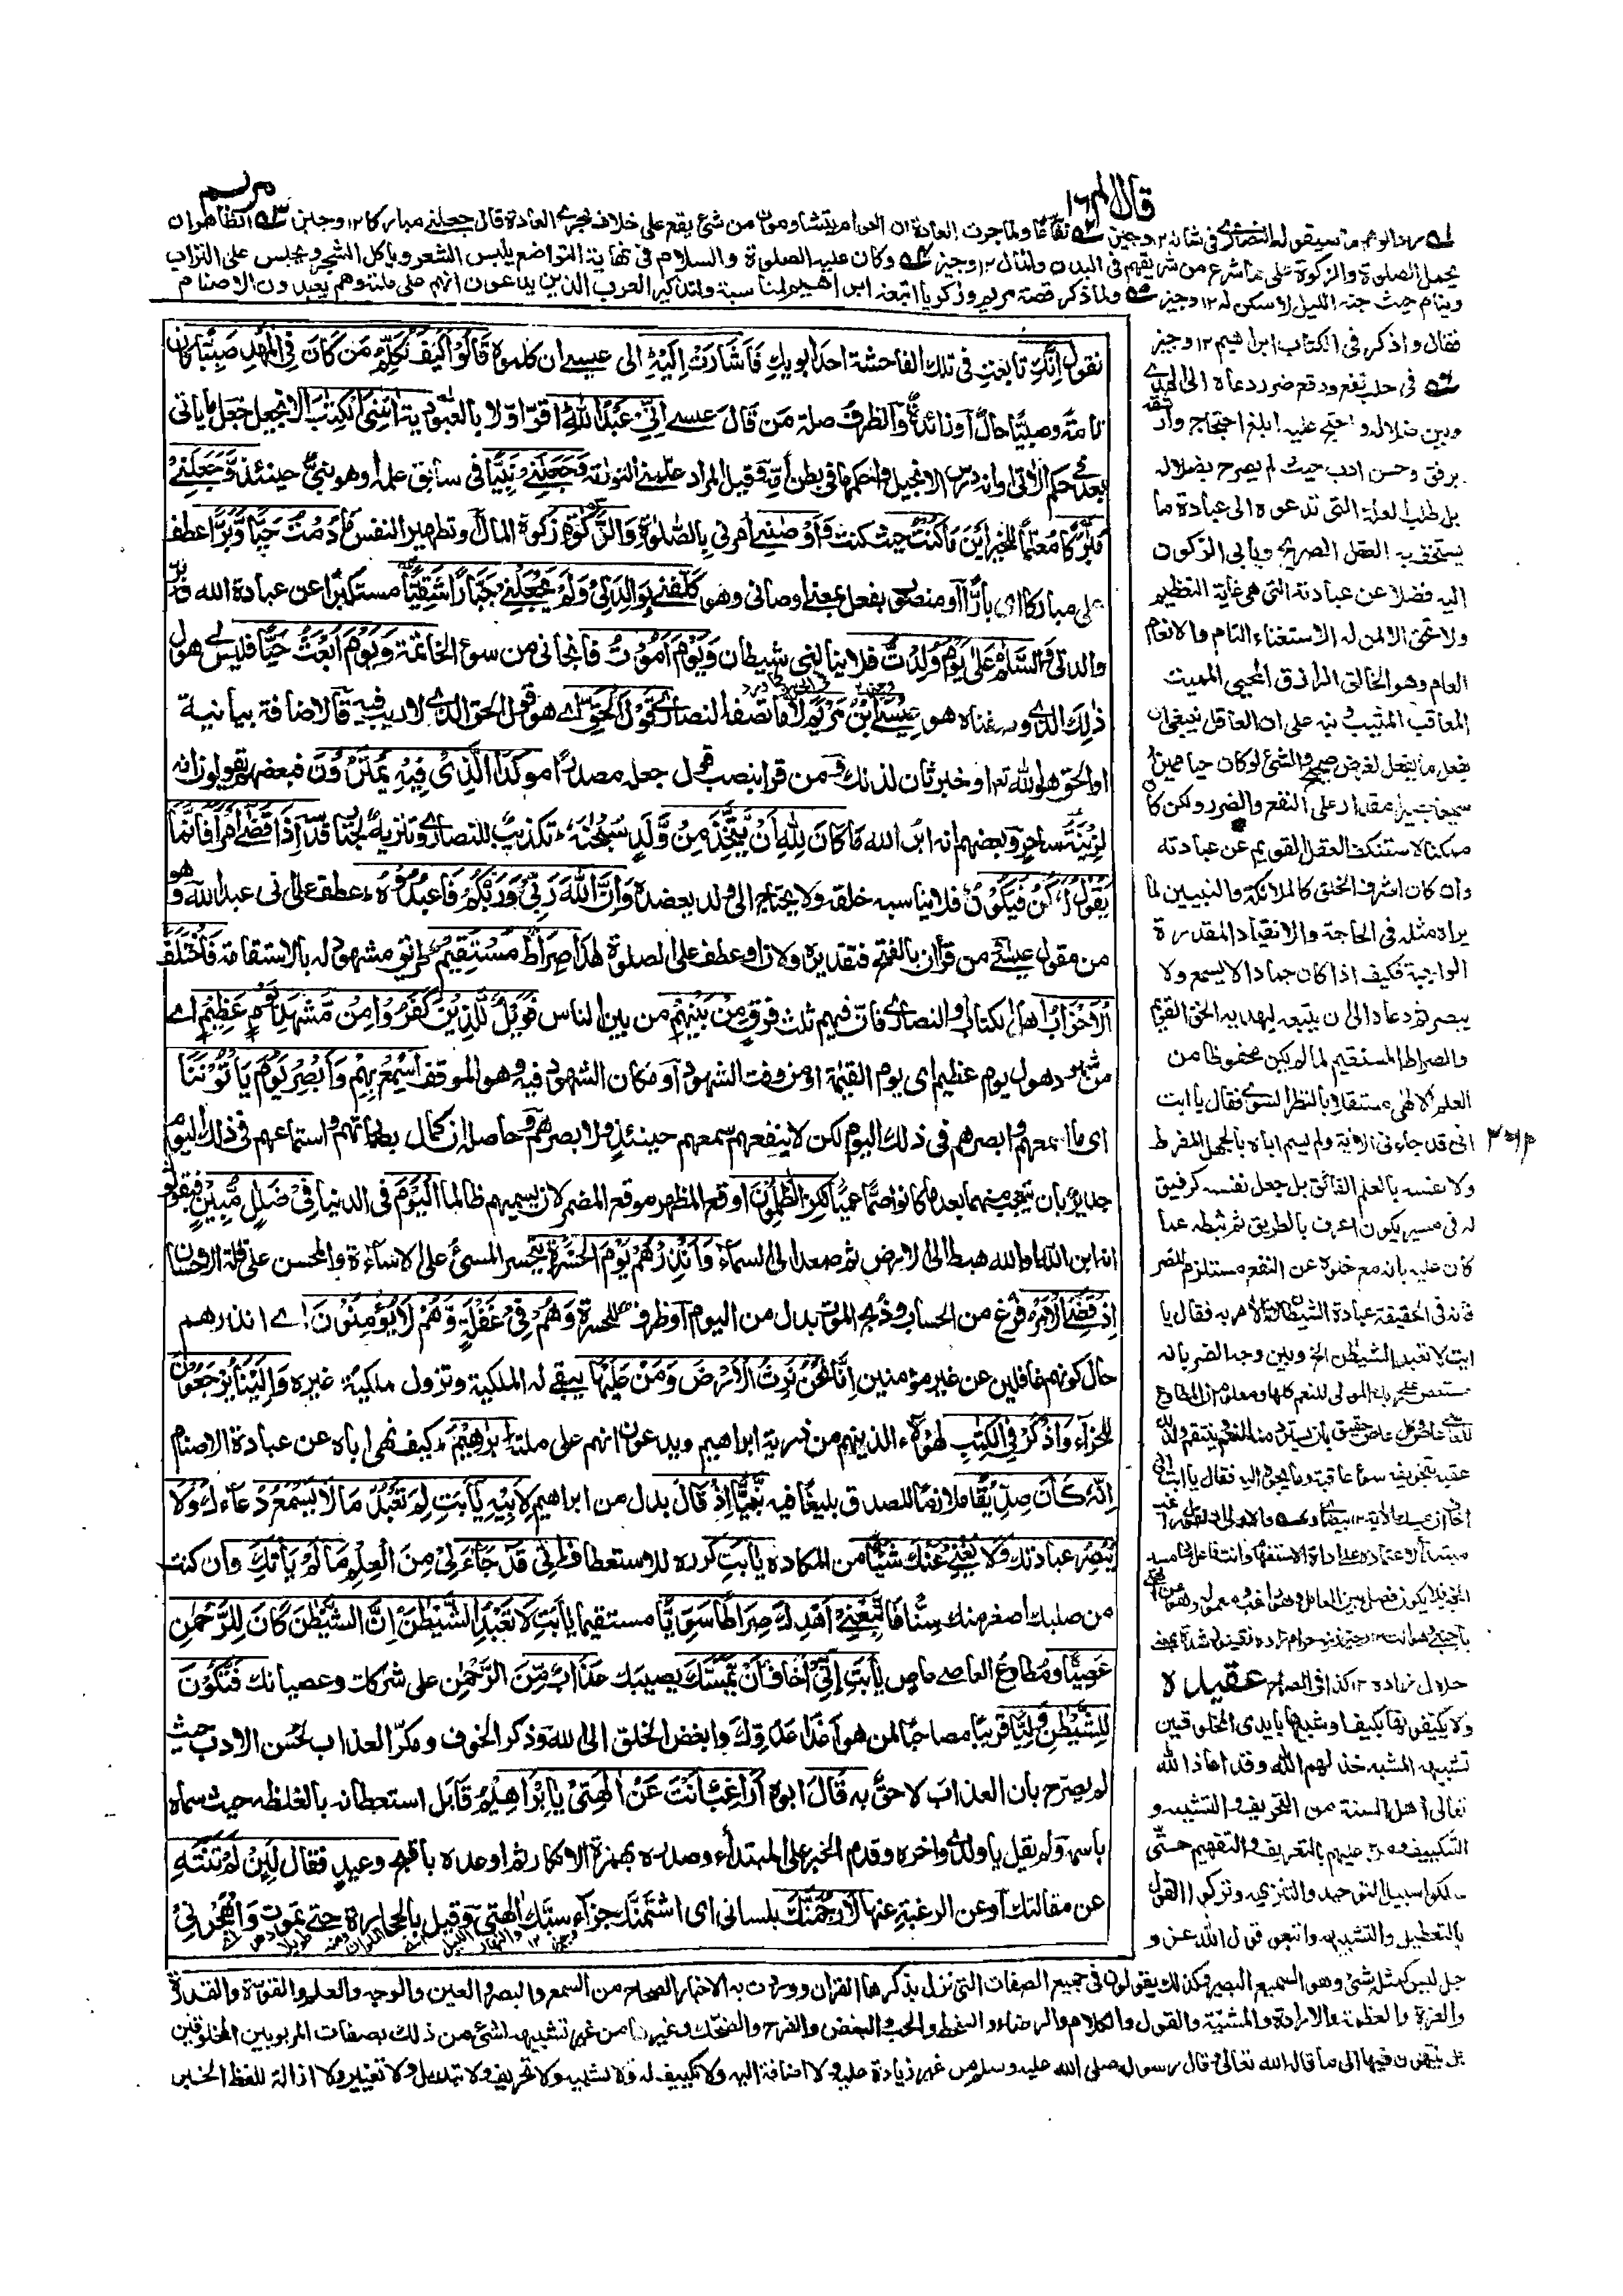 قال الم ١٦
مريم
يحمل الصلوة والزكوة على ما شرع من شريقهم فى البدن والمال ١٢ وجيز وكان عليه الصلوة والسلام فى نهاية التواضع يلبس الشعر وياكل الشجر ويجلس على التراب
وينام حيث جنه الليل لا سكن له ١٢ وجيز ولما ذكر قصة مريم وزكريا اتبعه ابراهيم لمناسبة ولتذكير العرب الذين يدعون انهم على ملته وهم يعبدون الاصنام
نقول اِنَّكِ تابعتِ فى تلك الفاحشة احد ابويك فَاَشَارَتْ اِلَيْهِ الى عيسے ان كلموه قَالُوْا كَيْفَ نُكَلِّمُ مَنْ كَانَ فِى الْمَهْدِ صَبِيًّا كان
تامة وصبيًّا حال او زائدة والظرف صلة من قَالَ عيسے اِنِّىْ عَبْدُ اللهِ اقر اولا بالعبودية اٰتٰنِىَ الْكِتٰبَ الانجيل جعل ما ياتى
بعد فى حكم الاتى او انه درس الانجيل واحكمها فى بطن امه وقيل المراد علمنے التورٰىة وَجَعَلَنِىْ نَبِيًّا فى سابق علمه او هو نبى حينئذ وَّجَعَلَنِىْ
مُبٰرَكًا معلمًا للخير اَيْنَ مَا كُنْتُ حيث كنت وَاَوْصٰنِىْ امرنى بِالصَّلٰوةِ وَالزَّكٰوةِ زكوة المال او تطهير النفس مَا دُمْتُ حَيًّا وَّبَرًّا عطف
على مباركا اى بارًّا او منصوب بفعل بمعنے اوصانى وهو كلفنے بِوَالِدَتِىْ وَلَمْ يَجْعَلْنِىْ جَبَّارًا شَقِيًّا مستكبرًا عن عبادة الله
والدتى وَالسَّلٰمُ عَلَىَّ يَوْمَ وُلِدْتُّ فلا ينالنى شيطان وَيَوْمَ اَمُوْتُ فانجانى من سوء الخاتمة وَيَوْمَ اُبْعَثُ حَيًّا فليس لى هول
ذٰلِكَ الذى وصفناه هو عِيْسَى ابْنُ مَرْيَمَ لا ما تصفه النصارى قَوْلَ الْحَقِّ اے هو قول الحق الذى لا ريب فيه فالاضافة بيانية
او الحق هو الله تعالى او خبر ثان لذلك ومن قرا بنصب قول جعله مصدرًا موكدا الَّذِىْ فِيْهِ يَمْتَرُوْنَ فبعضهم يقولون انه
لزنية ساحر وبعضهم انه ابن الله مَا كَانَ لِلّٰهِ اَنْ يَّتَّخِذَ مِنْ وَّلَدٍ سُبْحٰنَهٗ تكذيب للنصارى وتنزيه لجنابه اِذَا قَضٰى اَمْرًا فَاِنَّمَا
يَقُوْلُ لَهٗ كُنْ فَيَكُوْنُ فلا يناسبه خلقه ولا يحتاج الى ولد يعضده وَاِنَّ اللهَ رَبِّىْ وَرَبُّكُمْ فَاعْبُدُوْهُ عطف على انى عبد الله وهو
من مقول عيسے ومن قرأ ان بالفتح فتقديره ولان او عطف على الصلوة هٰذَا صِرَاطٌ مُّسْتَقِيْمٌ طريق مشهود له بالاستقامة فَاخْتَلَفَ
الْاَحْزَابُ اهل الكتاب او النصارى فان فيهم ثلث فرق مِنْۢ بَيْنِهِمْ من بين الناس فَوَيْلٌ لِّلَّذِيْنَ كَفَرُوْا مِنْ مَّشْهَدِ يَوْمٍ عَظِيْمٍ اے
من شهود هول يوم عظيم اى يوم القيٰمة او من وقت الشهود او مكان الشهود فيه وهو الموقف اَسْمِعْ بِهِمْ وَاَبْصِرْ يَوْمَ يَاْتُوْنَنَا
اى ما اسمعهم وابصرهم فى ذلك اليوم لكن لا ينفعهم سمعهم حينئذ ولا بصرهم وحاصله ان كمال بصارتهم واستماعهم فى ذلك اليوم
جدير بان يتعجب منهما بعد ما كانوا صمًّا عميًا لٰكِنِ الظّٰلِمُوْنَ اوقع المظهر موقع المضمر لان يسميهم ظالما الْيَوْمَ فى الدنيا فِىْ ضَلٰلٍ مُّبِيْنٍ فيقولون
انه ابن الله او الله هبط الى الارض ثم صعد الى السماء وَاَنْذِرْهُمْ يَوْمَ الْحَسْرَةِ يتحسر المسئ على الاساءة والمحسن على قلة الاحسان
اِذْ قُضِىَ الْاَمْرُ فرغ من الحساب وذبح الموت بدل من اليوم او ظرف للحسرة وَهُمْ فِىْ غَفْلَةٍ وَّهُمْ لَا يُؤْمِنُوْنَ اے انذرهم
حال كونهم غافلين عن غير مؤمنين اِنَّا نَحْنُ نَرِثُ الْاَرْضَ وَمَنْ عَلَيْهَا يبقى له الملكية وتزول ملكية غيره وَاِلَيْنَا يُرْجَعُوْنَ
للجزآء وَاذْكُرْ فِى الْكِتٰبِ لهؤلاء الذينهم من ذرية ابراهيم ويدعون انهم على ملته اِبْرٰهِيْمَ كيف نهى اباه عن عبادة الاصنام
اِنَّهٗ كَانَ صِدِّيْقًا ملازما للصدق بليغا فيه نَّبِيًّا اِذْ قَالَ بدل من ابراهيم لِاَبِيْهِ يٰۤاَبَتِ لِمَ تَعْبُدُ مَا لَا يَسْمَعُ دعاءك وَلَا
يُبْصِرُ عبادتك وَلَا يُغْنِىْ عَنْكَ شَيْئًا من المكاره يٰۤاَبَتِ كرره للاستعطاف اِنِّىْ قَدْ جَآءَنِىْ مِنَ الْعِلْمِ مَا لَمْ يَاْتِكَ وان كنت
من صلبك اصغر منك سنًّا فَاتَّبِعْنِىْ اَهْدِكَ صِرَاطًا سَوِيًّا مستقيما يٰۤاَبَتِ لَا تَعْبُدِ الشَّيْطٰنَ اِنَّ الشَّيْطٰنَ كَانَ لِلرَّحْمٰنِ
عَصِيًّا ومطاوع العاصے عاص يٰۤاَبَتِ اِنِّىْ اَخَافُ اَنْ يَّمَسَّكَ يصيبك عَذَابٌ مِّنَ الرَّحْمٰنِ على شركك وعصيانك فَتَكُوْنَ
لِلشَّيْطٰنِ وَلِيًّا قرينا مصاحبًا لمن هو اعدا عدوك وابغض الخلق الى الله وذكر الخوف ونكر العذاب لحسن الادب حيث
لم يصرح بان العذاب لاحق به قَالَ ابوه اَرَاغِبٌ اَنْتَ عَنْ اٰلِهَتِىْ يٰۤاِبْرٰهِيْمُ قابل استعطافه بالغلظة حيث سماه
باسمه ولم يقل يا ولدى واخره وقدم الخبر على المبتدأ وصدره بهمزة الانكار ثم اوعده باقبح وعيد فقال لَئِنْ لَّمْ تَنْتَهِ
عن مقالتك او عن الرغبة عنها لَاَرْجُمَنَّكَ بلسانى اى اشتمنك جزآء سبك اٰلهتى وقيل بالحجارة حتے تموت وَاهْجُرْنِىْ
فقال واذكر فى الكتاب ابراهيم ١٢ وجيز
برفق وحسن ادب حيث لم يصرح بضلاله
بل طلب العلة التى تدعوه الى عبادة ما
يستخف به العقل الصريح ويابى الركون
اليه فضلا عن عبادته التى هى غاية التعظيم
ولا تحق الا لمن له الاستغناء التام والانعام
العام وهو الخالق الرازق المحيى المميت
المعاقب المثيب ونبه على ان العاقل ينبغى ان
يفعل ما يفعل لغرض صحيح والشئ لو كان حيا مميزا
سميعا بصيرا مقتدرا على النفع والضر ولكن كان
ممكنا لاستنكف العقل القويم عن عبادته
وان كان اشرف الخلق كالملائكة والنبيين لما
يراه مثله فى الحاجة والانقياد للقدرة
الواجبة فكيف اذا كان جمادا لا يسمع ولا
يبصر ثم دعاه الى ان يتبعه ليهديه الحق القويم
والصراط المستقيم لما لم يكن محفوظا من
العلم الالهى مستقلا بالنظر السوى فقال يا ابت
انى قد جاءنى الاية ولم يسم اباه بالجهل المفرط
ولا نفسه بالعلم الفائق بل جعل نفسه كرفيق
له فى مسير يكون اعرف بالطريق ثم ثبطه عما
كان عليه بانه مع خلوه عن النفع مستلزم للضر
فانه فى الحقيقة عبادة الشيطان لانه الامر به فقال يا
ابت لا تعبد الشيطٰن الخ وبين وجه الضر بانه
حلال زاده ١٢ كذا فى الصراح عقيده
ولا يكيفونها بكيف او شبهها بايدى المخلوقين
تشبيه المشبه خذلهم الله وقد اعاذ الله
تعالى اهل السنة من التحريف والتشبيه و
التكييف ومن عليهم بالتعريف والتفهيم حتّى
سلكوا سبيل التوحيد والتنزيه وتركوا القول
بالتعطيل والتشبيه واتبعوا قول الله عز و
جل ليس كمثله شئ وهو السميع البصير وكذلك يقولون فى جميع الصفات التى نزل بذكرها القران ووردت به الاخبار الصحاح من السمع والبصر والعين والوجه والعلم والقوة والقدرة
والعزة والعظمة والارادة والمشية والقول والكلام والرضاء والسخط والحب والبغض والفرح والضحك وغيرها من غير تشبيه لشئ من ذلك بصفات المربوبين المخلوقين
بل ينتهون فيها الى ما قاله الله تعالى وقال رسوله صلى الله عليه وسلم من غير زيادة عليه ولا اضافة اليه ولا تكييف له ولا تشبيه ولا تحريف ولا تبديل ولا تغيير ولا ازالة للفظ الخبر